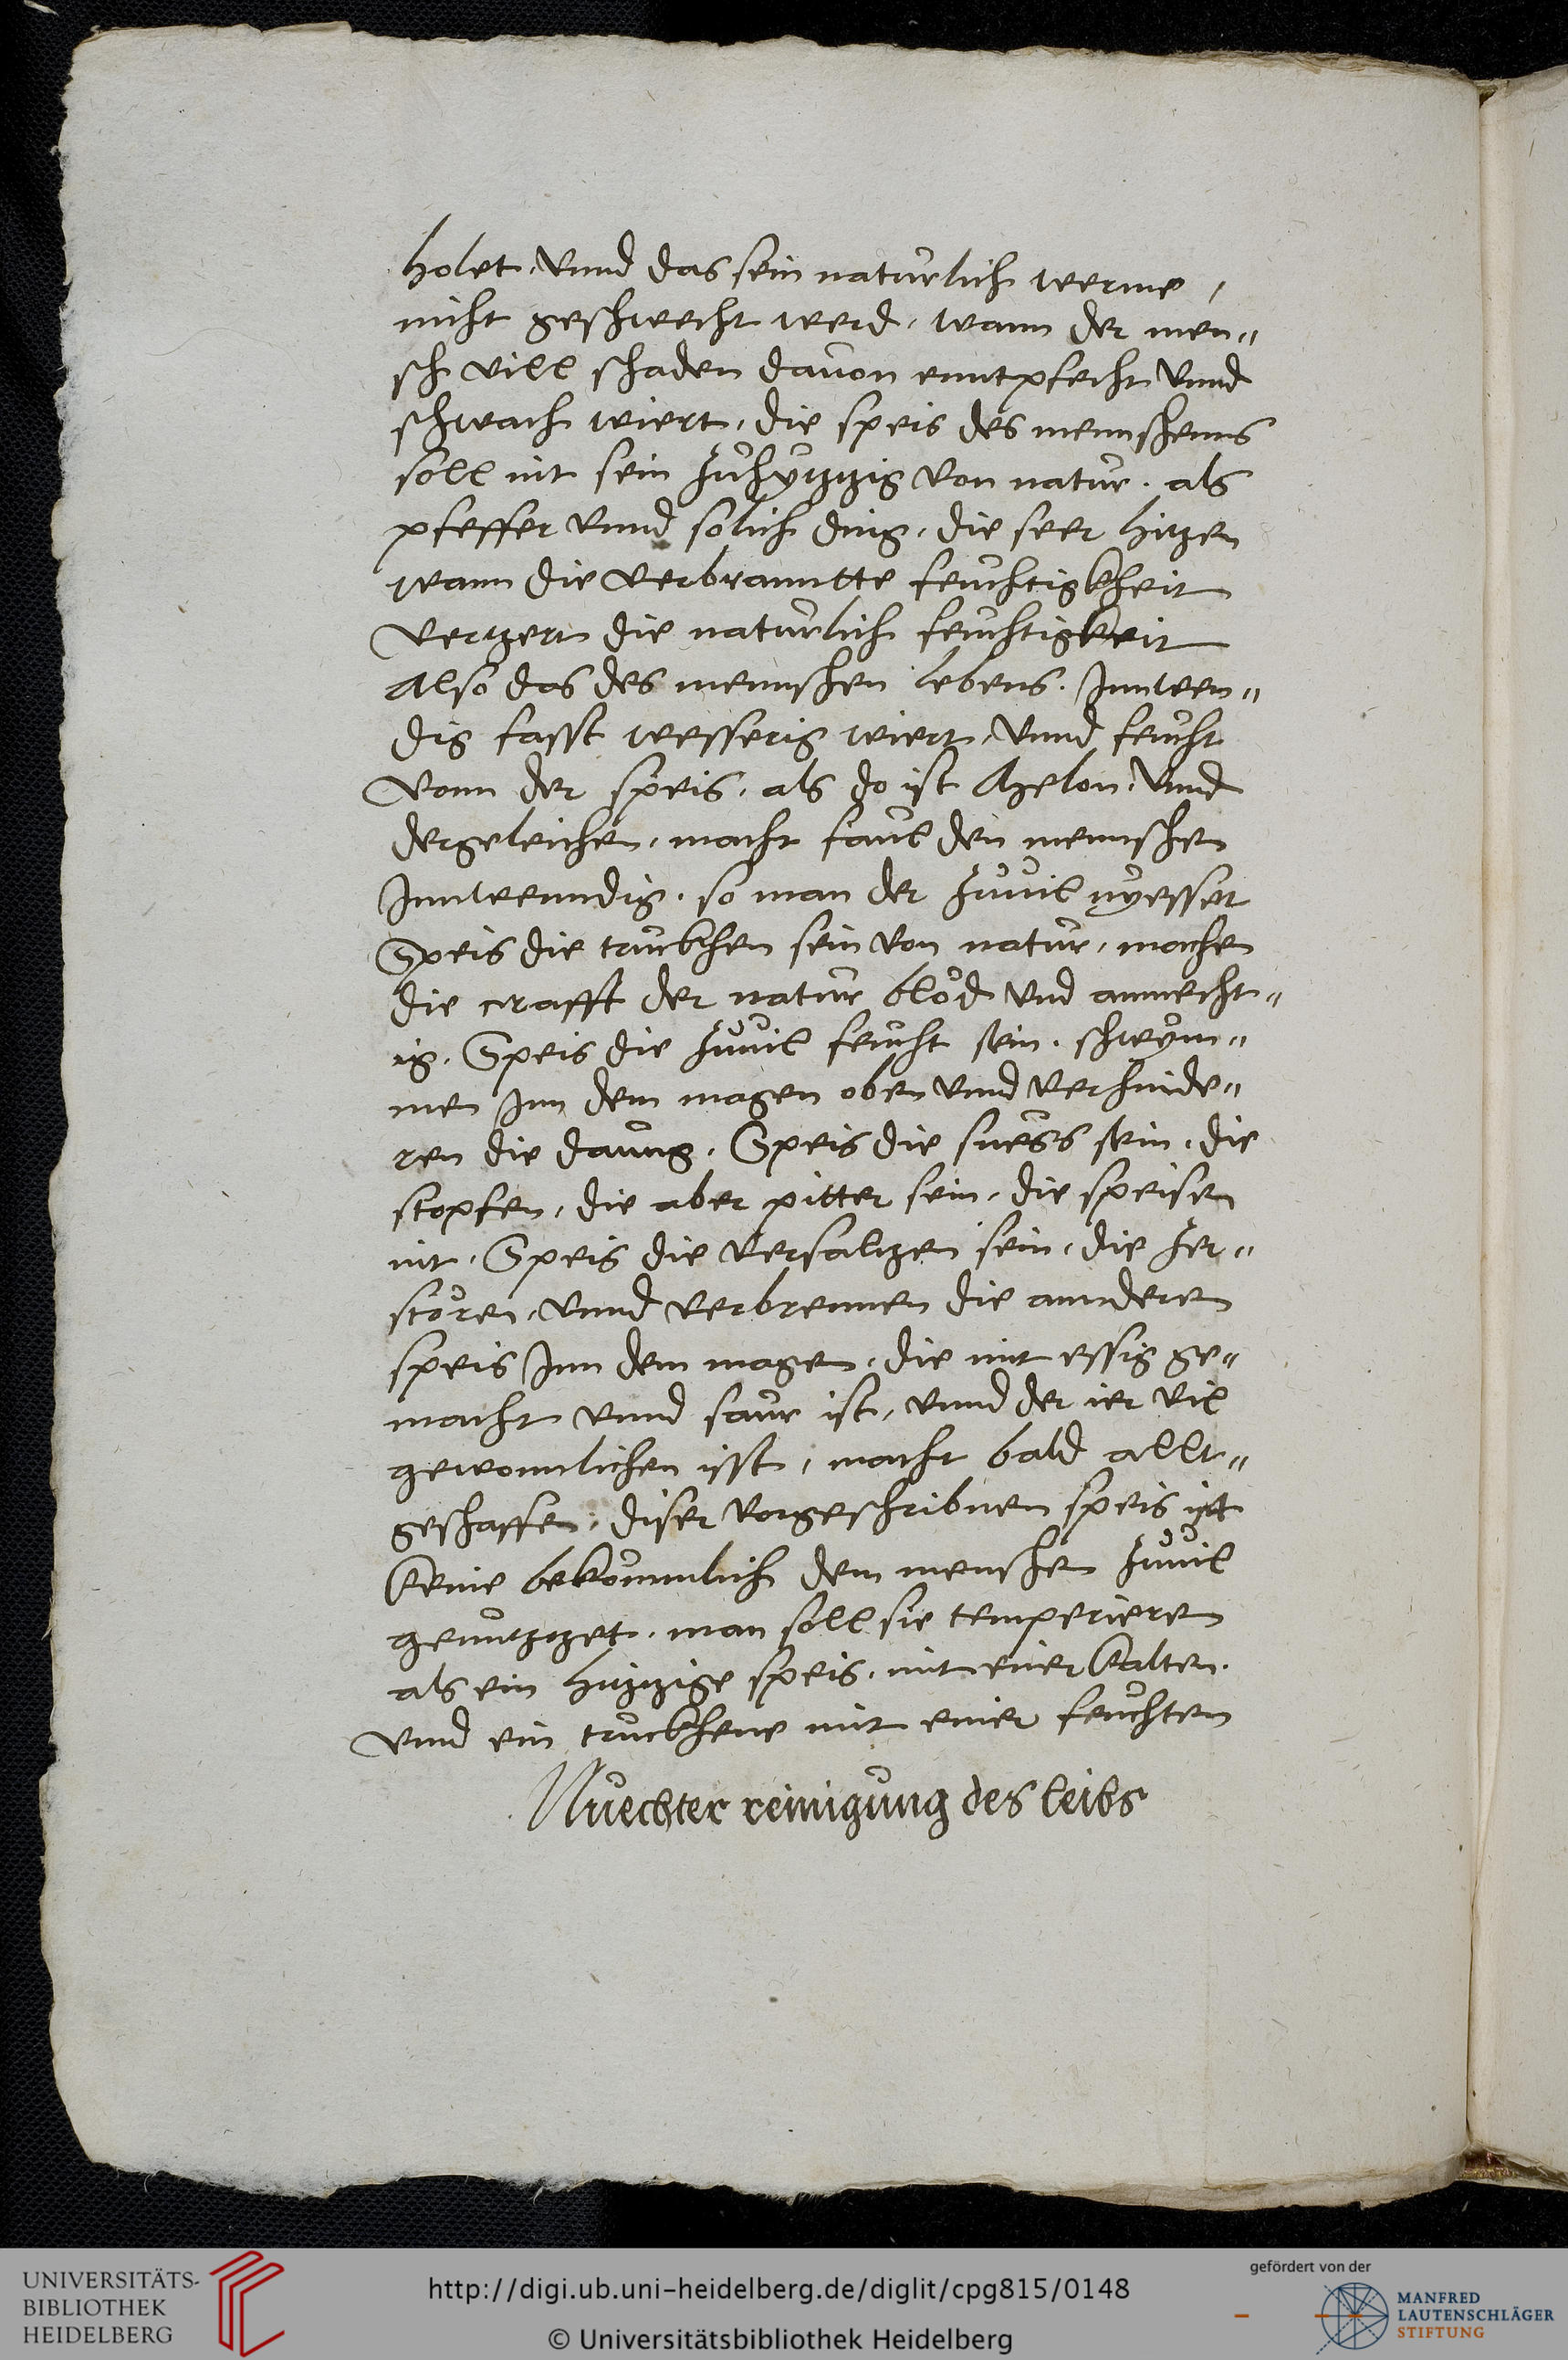 holet, vnnd das sein naturlich werme,
nicht geschwecht werd, wann der men„
sch vill schaden dauon enntpfecht vnnd
schwach wiert, die speis des mennschenns
soll nit sein zuhyzzig von natur, als
pfeffer vnnd solich ding, die seer hitzen
wann die verbranntte feuchtigkheit
verzert die naturlich feuchtigkeit
Also das des mennschen lebens, Innwen„
dig fasst wesserig wiert, vnnd feucht
vonn der speis, als do ist Melon, vnnd
dergeleichen, macht faul den mennschen
Innwenndig, so man der zuuil nyesset
Speis die truckhen sein von natur, machen
die crafft der natur blöd vnd anmecht„
ig, Speis die zuuil feucht sein, schwym„
men Inn dem magen oben vnnd verhinde„
ren die dauung, Speis die suess sein, die
stopfen, die aber pitter sein, die speisen
nit, Speis die versaltzen sein, die zer„
stören, vnnd verbrennen die annderen
speis Inn dem magen, die mit essig ge„
macht vnnd saur ist, vnnd der ier vil
gewonnlichen isst, macht bald allt„
geschaffen, diser vorgeschribnen speis ist
Keine bekommlich dem menschen zuuil
genutzzet, man soll sie temperieren
als ein hizzige speis, mit einer kalten,
vnnd ein truckhene mit einer feuchten
Nuechter reinigung des leibs
UNIVERSITÄTS-
BIBLIOTHEK
HEIDELBERG
http://digi.ub.uni-heidelberg.de/diglit/cpg815/0148
© Universitätsbibliothek Heidelberg
gefördert von der
MANFRED
LAUTENSCHLÄGER
STIFTUNG